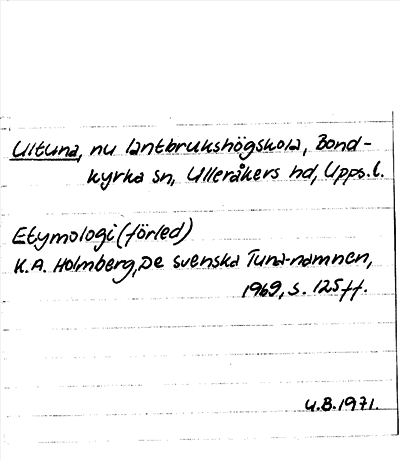 Ultuna, nu lantbrukshögskola, Bond-
kyrka sn, Ulleråkers hd, Upps.l.
Etymologi (förled)
K.A. Holmberg, De svenska Tuna-namnen,
1969, s. 125ff.
U.B. 1971.